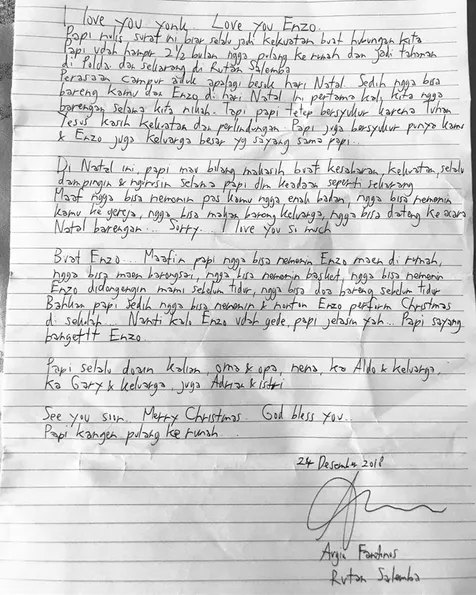 I love you yonk. Love you Enzo.
Papi nulis surat ini biar selalu jadi kekuatan buat hubungan kita
Papi udah hampir 2 1/2 bulan ngga pulang ke rumah dan jadi tahanan
di Polda dan sekarang di Rutan Salemba
Perasaan campur aduk apalagi besok hari Natal. Sedih ngga bisa
bareng kamu dan Enzo di hari Natal ini pertama kali kita ngga
barengan selama kita nikah. Tapi papi tetep bersyukur karena Tuhan
Yesus kasih kekuatan dan perlindungan. Papi juga bersyukur punya kamu
& Enzo juga keluarga besar yg sayang sama papi...
Di Natal ini, papi mau bilang makasih buat kesabaran, kekuatan, selalu
dampingin & ngurusin selama papi dlm keadaan seperti sekarang
Maaf ngga bisa nemenin pas kamu ngga enak badan, ngga bisa nemenin
kamu ke gereja, ngga bisa makan bareng keluarga, ngga bisa dateng ke acara
Natal barengan... Sorry... I love you so much
Buat Enzo... Maafin papi ngga bisa nemenin Enzo maen di rumah,
ngga bisa maen barongsai, ngga bisa nemenin basket, ngga bisa nemenin
Enzo didongengin mami sebelum tidur, ngga bisa doa bareng sebelum tidur
Bahkan papi sedih ngga bisa nemenin & nonton Enzo perform Christmas
di sekolah... Nanti kalo Enzo udah gede, papi jelasin yah... Papi sayang
bangettt Enzo.
Papi selalu doain kalian, oma & opa, nena, ka Aldo & keluarga,
ka Gary & keluarga, juga Adrian & istri
See you sion. Merry Christmas. God bless you...
Papi kangen pulang ke rumah
24 Desember 2018
Rutan Salemba